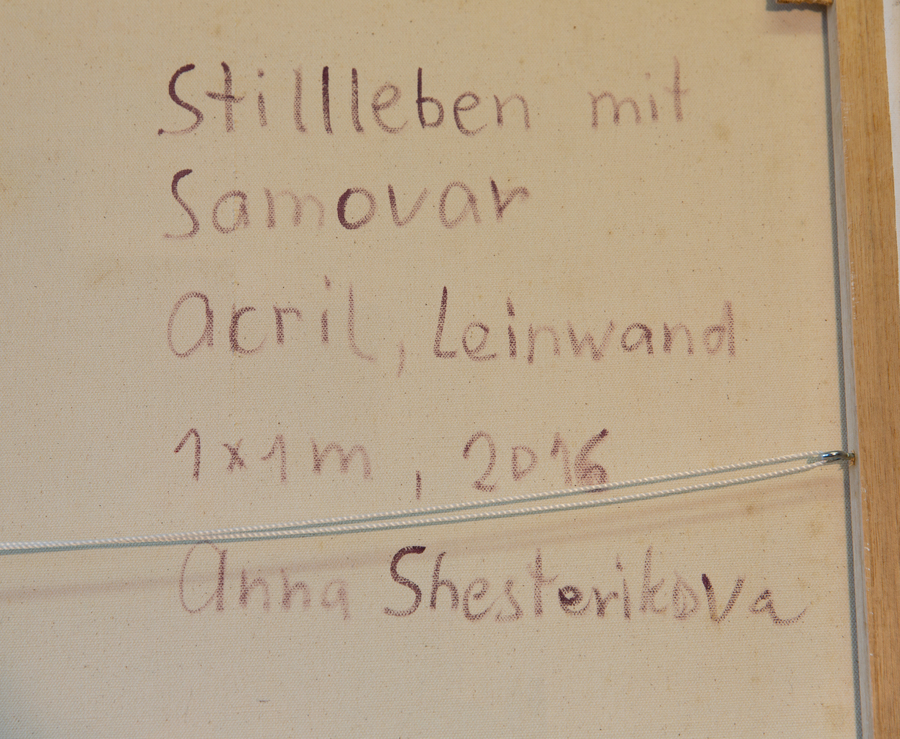 Stillleben mit
Samovar
Acril, Leinwand
1x1 m, 2016
Anna Shesterikova